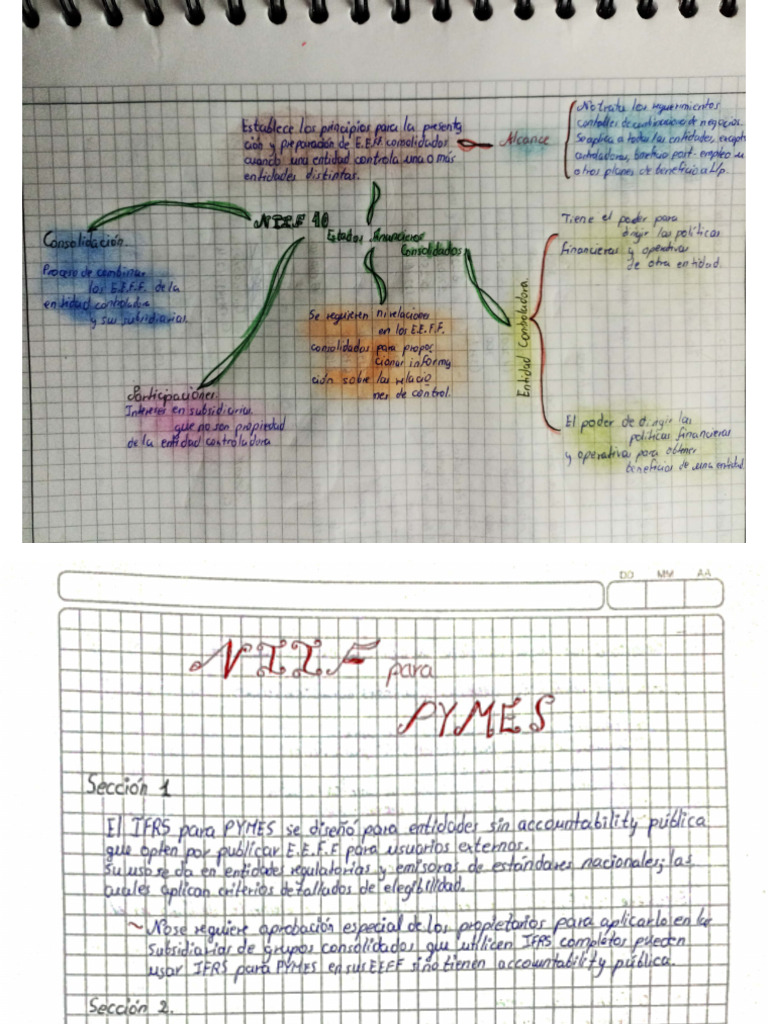 Establece los principios para la presenta
ción y preparación de E.E.F.F consolidados
cuando una entidad controla una o más
entidades distintas.
Alcance
No trata los requerimientos
contables de combinaciones de negocios.
Se aplica a todas las entidades, excepto
controladoras, beneficios post-empleo u
otros planes de beneficio a L/p.
NIIF 10
Estados financieros
Consolidados
Consolidación.
Proceso de combinar
los E.E.F.F. de la
entidad controladora
y sus subsidiarias.
Participaciones.
Intereses en subsidiarias.
que no son propiedad
de la entidad controladora
Se requieren nivelaciones
en los E.E.F.F.
consolidados para propor
cionar informa
ción sobre las relacio
nes de control.
Entidad Controladora.
Tiene el poder para
dirigir las políticas
financieras y operativas
de otra entidad.
El poder de dirigir las
políticas financieras
y operativas para obtener
beneficios de una entidad
DD MM AA
NIIF para
PYMES
Sección 1
El IFRS para PYMES se diseñó para entidades sin accountability pública
que opten por publicar E.E.F.F para usuarios externos.
Su uso se da en entidades regulatorias y emisoras de estándares nacionales; las
cuales aplican criterios detallados de elegibilidad.
~ No se requiere aprobación especial de los propietarios para aplicarlo en las
subsidiarias de grupos consolidados que utilicen IFRS completos pueden
usar IFRS para PYMES en sus EEFF si no tienen accountability pública.
Sección 2.